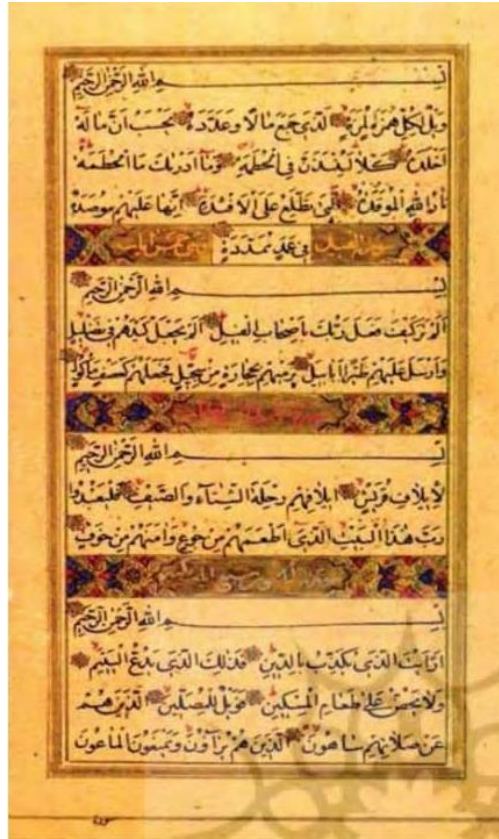 بسم الله الرحمن الرحيم
ويل لكل همزة لمزة الذى جمع مالا وعدده يحسب ان ماله
اخلده كلا لينبذن فى الحطمة وما ادريك ما الحطمة
نار الله الموقدة التى تطلع على الافئدة انها عليهم موصدة
سورة الفيل فى عمد ممددة وهى خمس ايات
بسم الله الرحمن الرحيم
الم تر كيف فعل ربك باصحاب الفيل الم يجعل كيدهم فى تضليل
وارسل عليهم طيرا ابابيل ترميهم بحجارة من سجيل فجعلهم كعصف مأكول
بسم الله الرحمن الرحيم
لايلاف قريش ايلافهم رحلة الشتاء والصيف فليعبدوا
رب هذا البيت الذى اطعمهم من جوع وامنهم من خوف
بسم الله الرحمن الرحيم
ارايت الذى يكذب بالدين فذلك الذى يدع اليتيم
ولا يحض على طعام المسكين فويل للمصلين الذين هم
عن صلاتهم ساهون الذين هم يراؤن ويمنعون الماعون